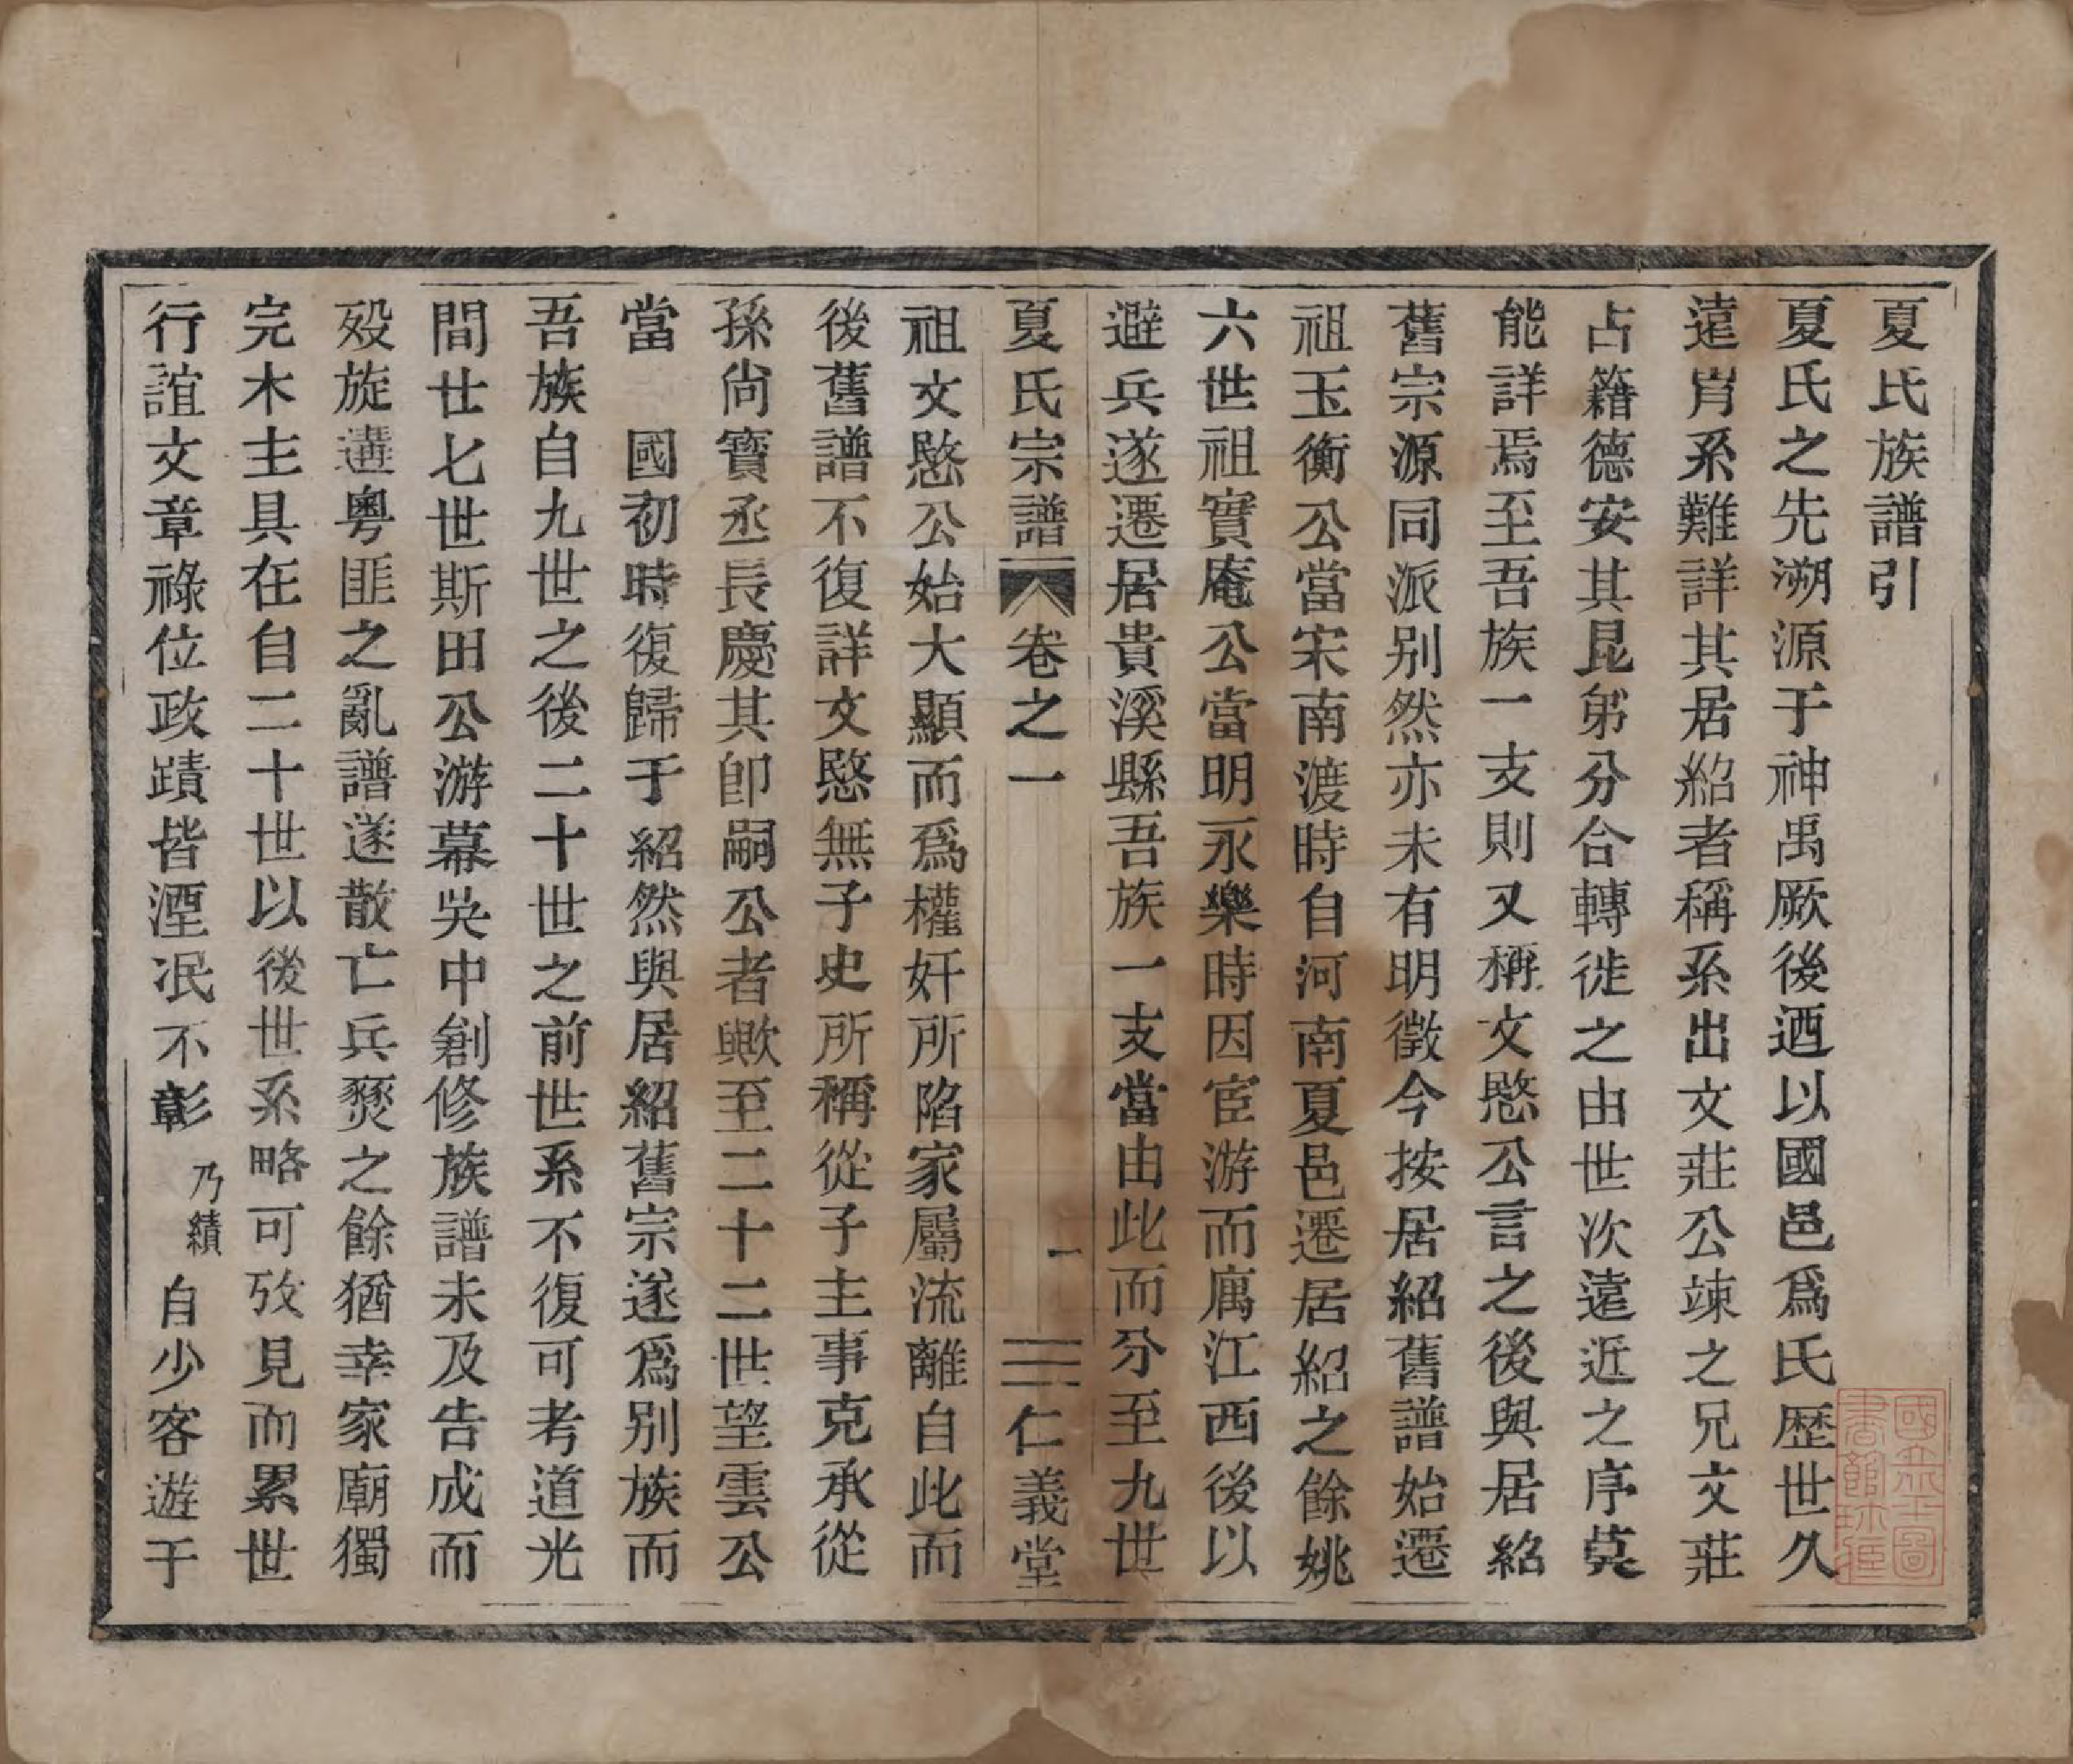 夏氏族譜引
夏氏之先溯源于神禹厥後迺以國邑爲氏歷世久
遠肯系難詳其居紹者稱系出文莊公竦之兄文莊
占籍德安其昆弟分合轉徙之由世次遠近之序莫
能詳焉至吾族一支則又稱文愍公言之後與居紹
舊宗源同派别然亦未有明徵今按居紹舊譜始遷
祖玉衡公當宋南渡時自河南夏邑遷居紹之餘姚
六世祖實庵公當明永樂時因宦游而厲江西後以
避兵遂遷居貴溪縣吾族一支當由此而分至九世
夏氏宗譜 卷之一 一 仁義堂
祖文愍公始大顯而爲權奸所陷家屬流離自此而
後舊譜不復詳文愍無子史所稱從子主事克承從
孫尚寶丞長慶其卽嗣公者歟至二十二世望雲公
當 國初時復歸于紹然與居紹舊宗遂爲别族而
吾族自九世之後二十世之前世系不復可考道光
間廿七世斯田公游幕吳中創修族譜未及告成而
歿旋遘粵匪之亂譜遂散亡兵燹之餘猶幸家廟獨
完木主具在自二十世以後世系略可攷見而累世
行誼文章祿位政蹟皆湮泯不彰乃績自少客遊于